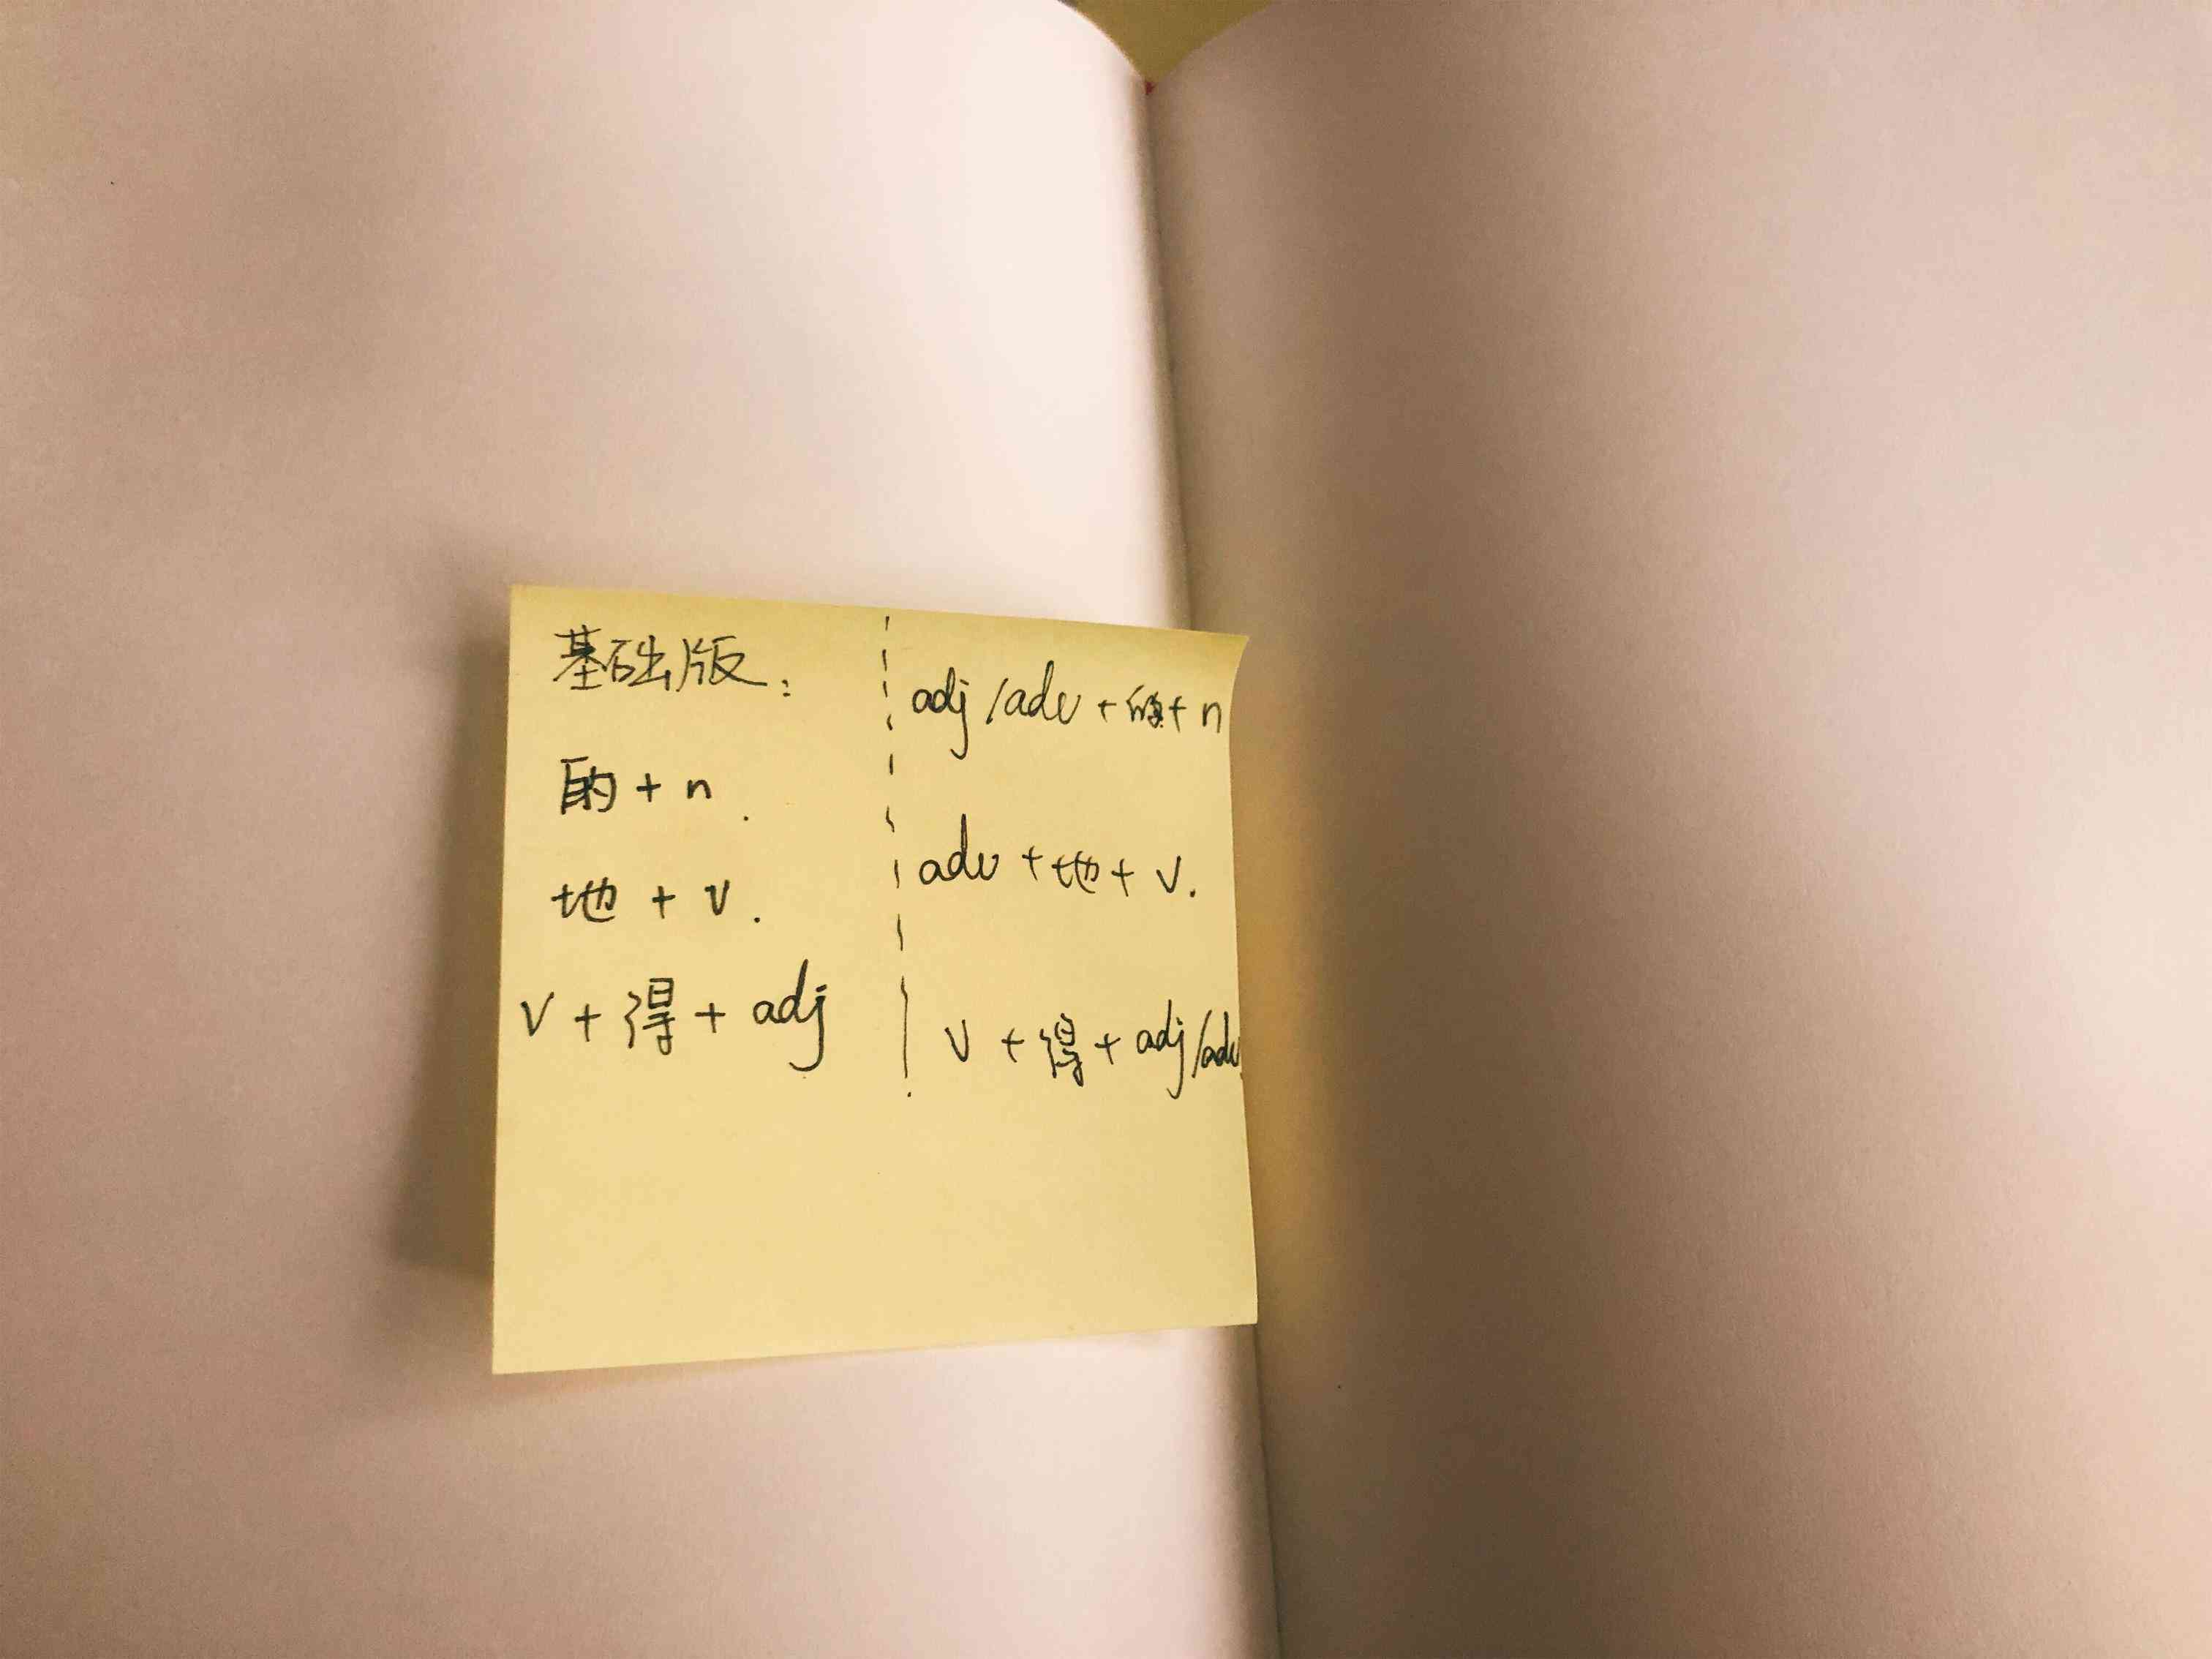 基础版:
的 + n.
地 + v.
v + 得 + adj
adj/adv + 的 + n
adv + 地 + v.
v + 得 + adj/adv